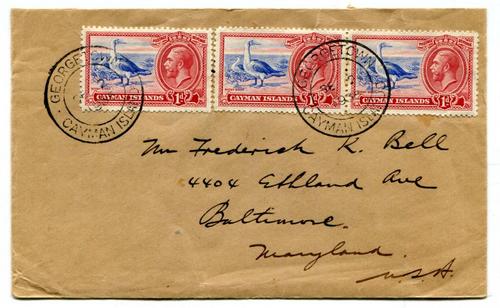 GEORGETOWN
CAYMAN ISLANDS
CAYMAN ISLANDS
1d
CAYMAN ISLANDS
1d
CAYMAN ISLANDS
1d
GEORGETOWN
CAYMAN ISLANDS
Mr Frederick K. Bell
4404 Ethland Ave
Baltimore.
Maryland.
U.S.A.